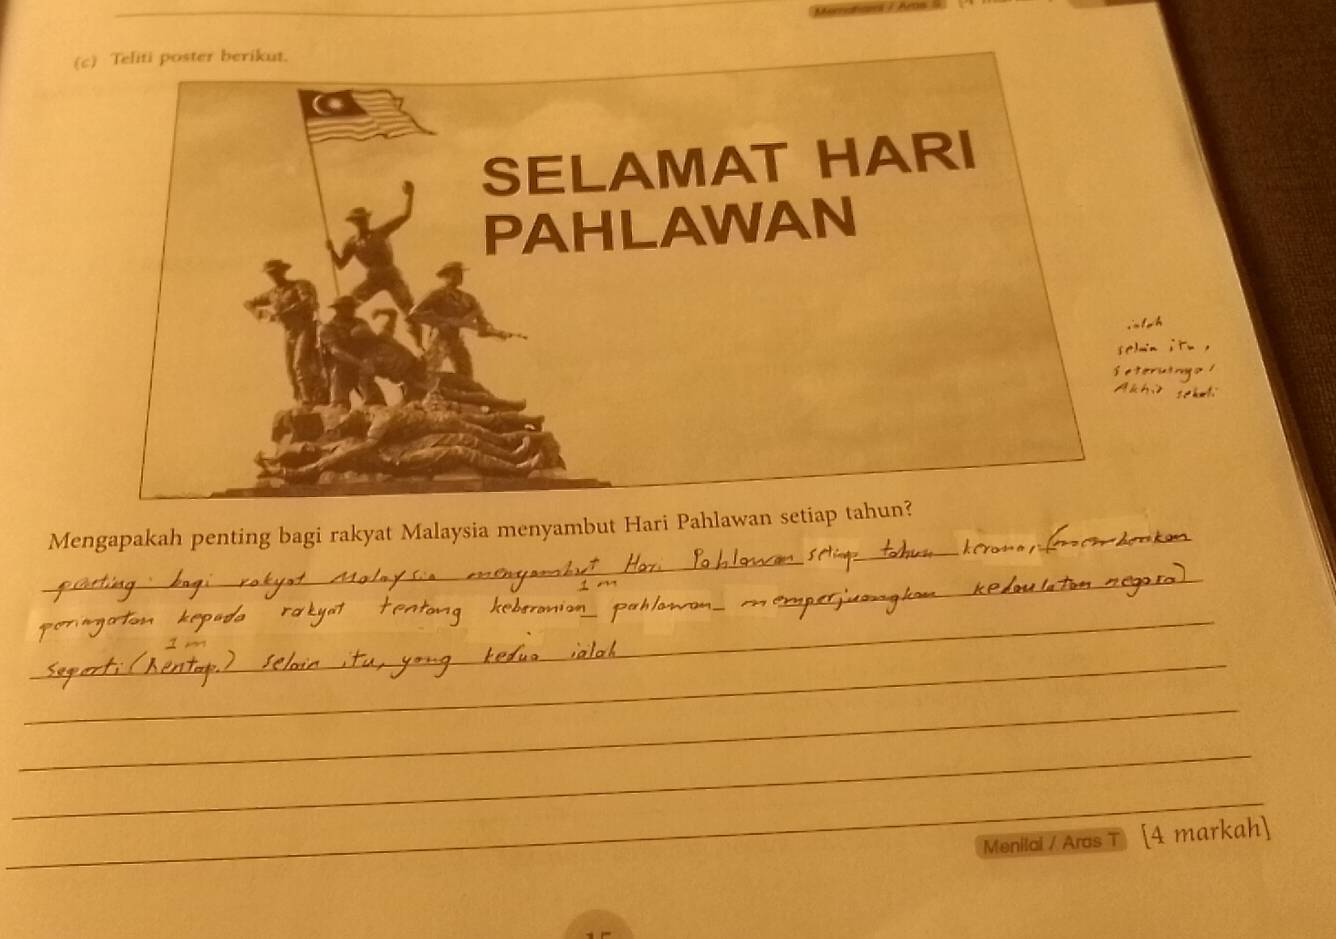 Memahami / Aras S
(c) Teliti poster berikut.
SELAMAT HARI
PAHLAWAN
ialah
selain itu,
seterusnya /
Akhir sekali
Mengapakah penting bagi rakyat Malaysia menyambut Hari Pahlawan setiap tahun?
penting bagi rakyat Malaysia menyambut Hari Pahlawan setiap tahun kerana, (memberikan
1 m
peringatan kepada rakyat tentang keberanian pahlawan memperjuangkan kedaulatan negara)
1 m
seperti (hentap.) selain itu, yang kedua ialah
Menilai / Aras T [4 markah]
15